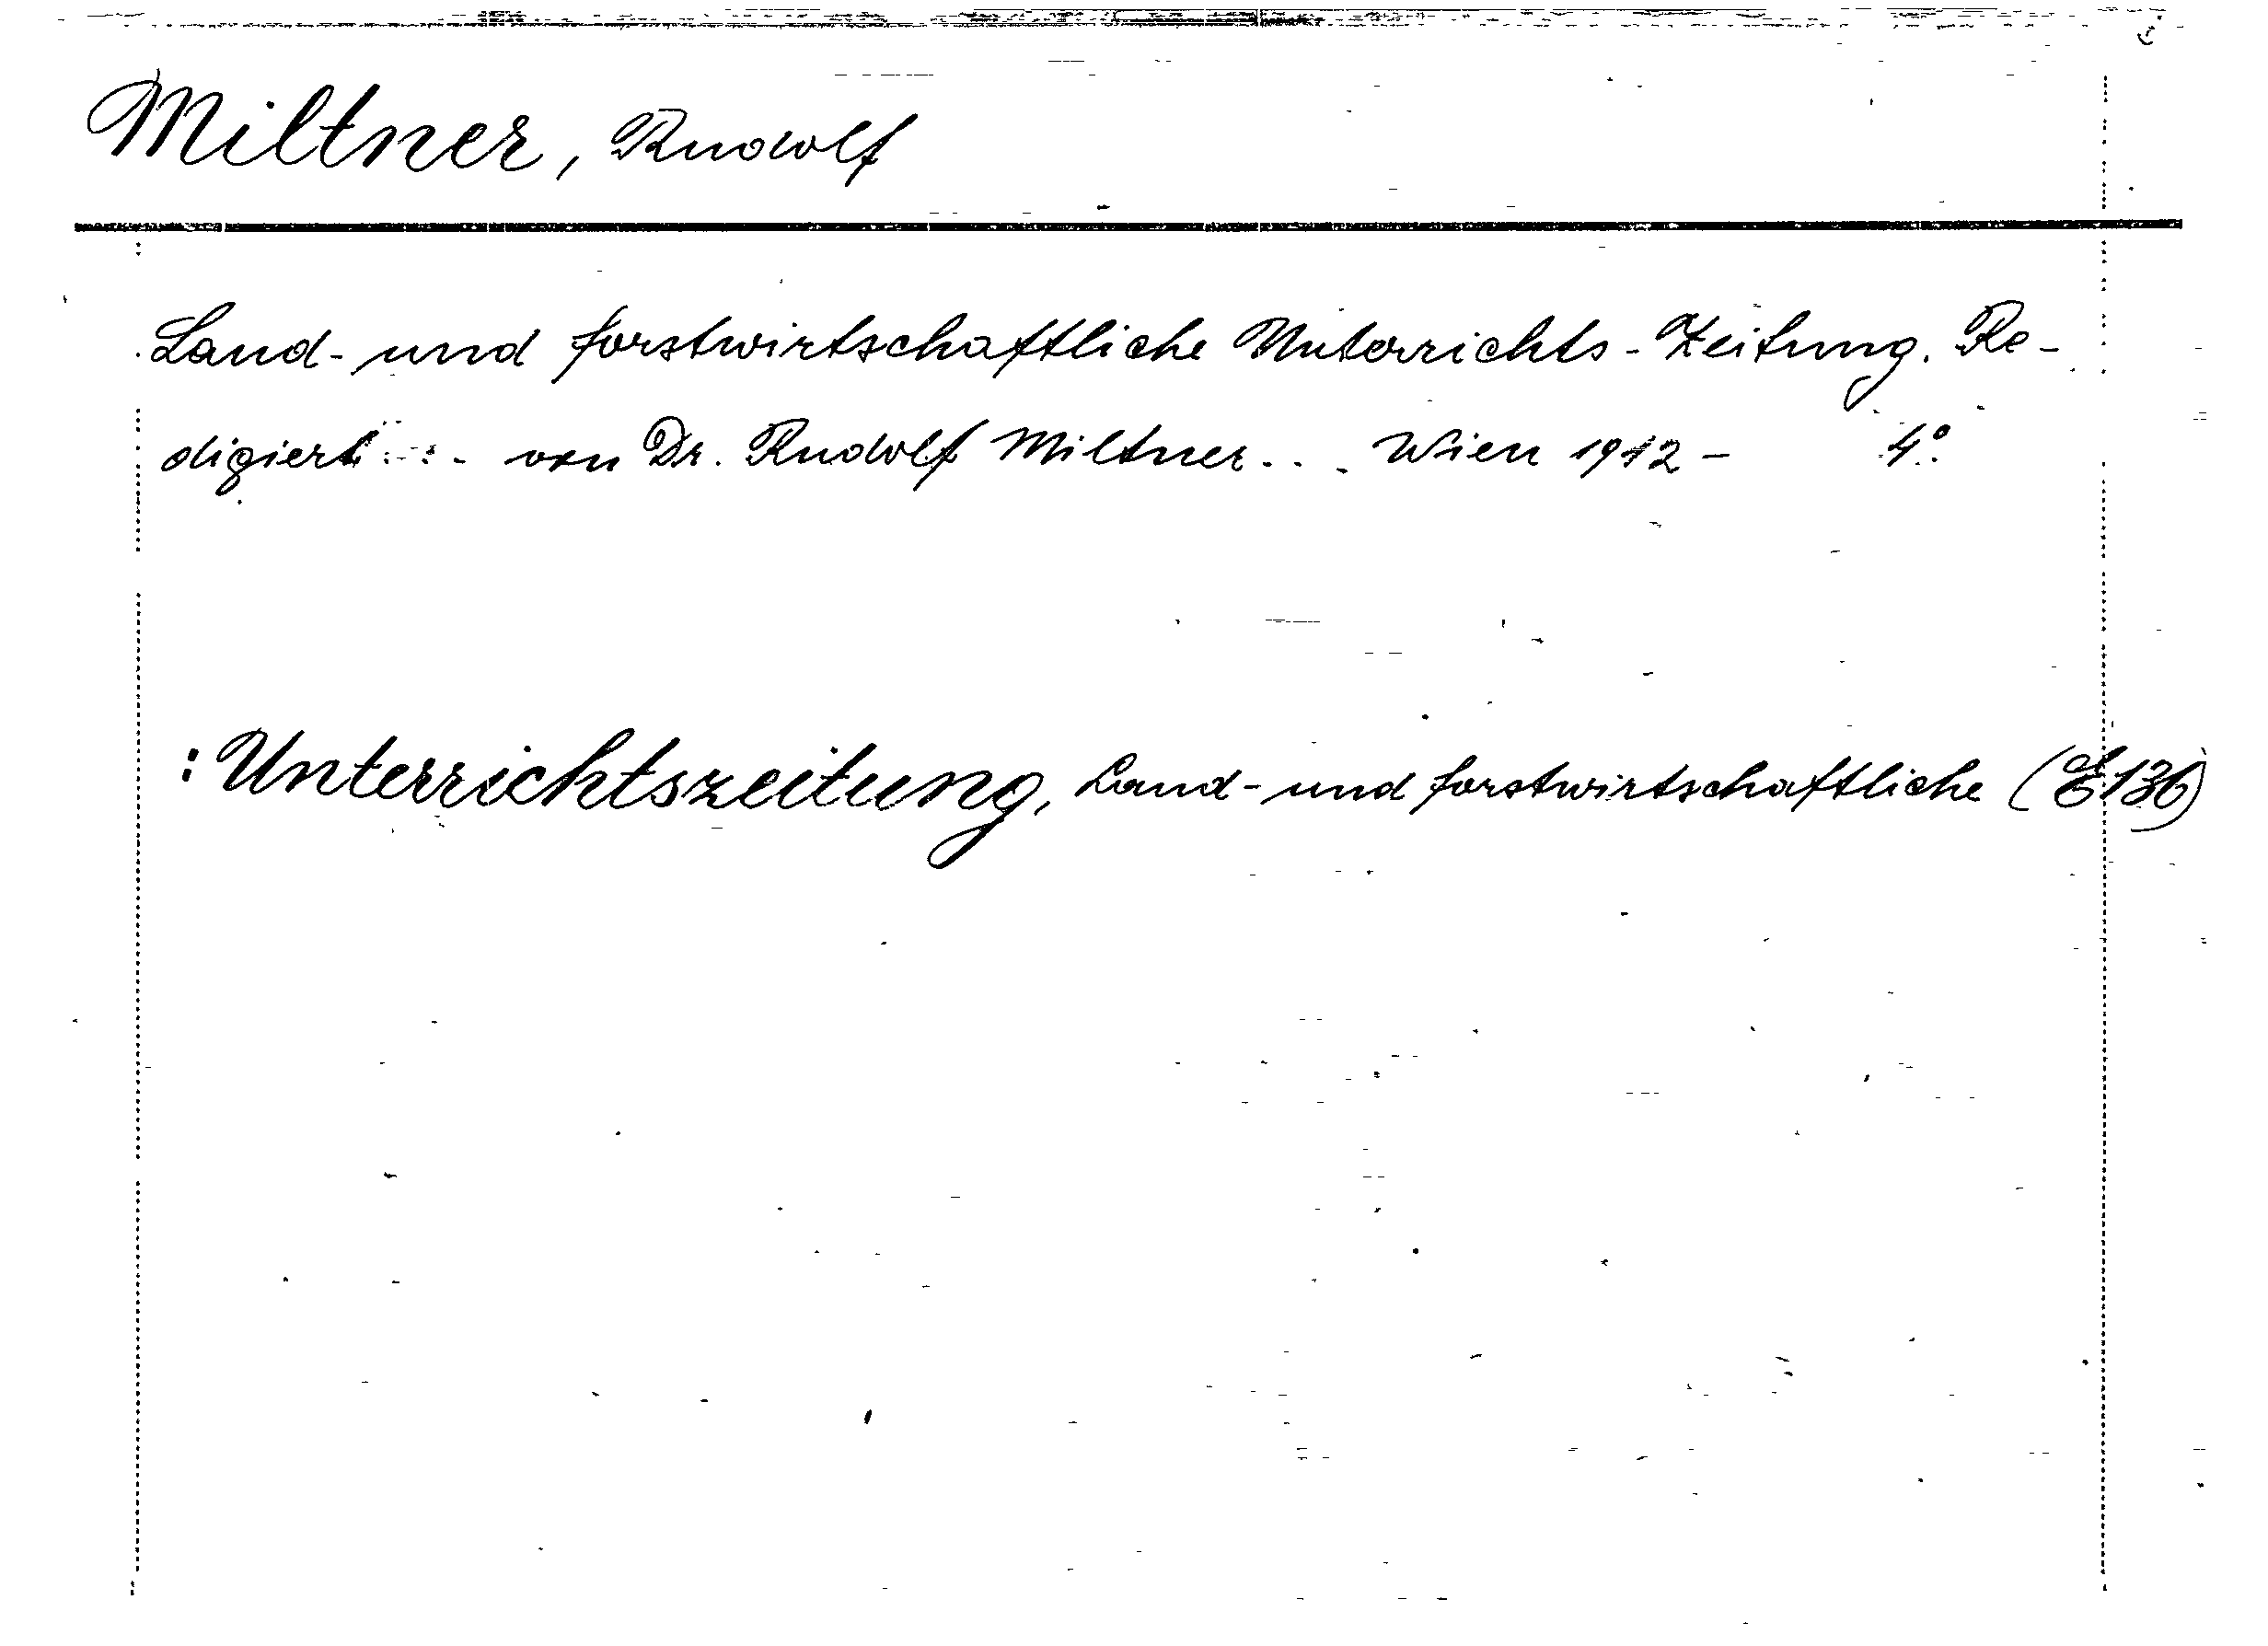 Miltner, Rudolf
Land- und forstwirtschaftliche Unterrichts-Zeitung. Re-
digiert ... von Dr. Rudolf Miltner ... Wien 1912 - 4°
: Unterrichtszeitung, Land- und forstwirtschaftliche